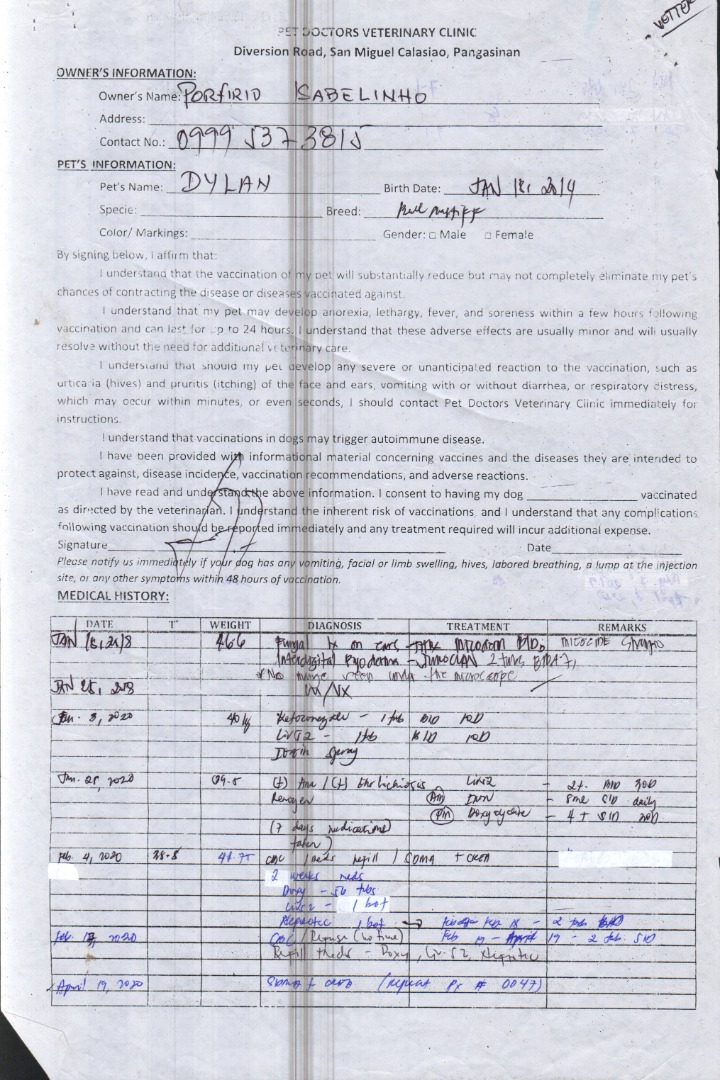 VETTER
PET DOCTORS VETERINARY CLINIC
Diversion Road, San Miguel Calasiao, Pangasinan
OWNER'S INFORMATION:
Owner's Name: PORFIRIO ISABELINHO
Address:
Contact No.: 0999 537 3815
PET'S INFORMATION:
Pet's Name: DYLAN Birth Date: JAN 18, 2014
Specie: Breed: Bull mastiff
Color/ Markings: Gender: □ Male □ Female
By signing below, I affirm that:
I understand that the vaccination of my pet will substantially reduce but may not completely eliminate my pet's
chances of contracting the disease or diseases vaccinated against.
I understand that my pet may develop anorexia, lethargy, fever, and soreness within a few hours following
vaccination and can last for up to 24 hours. I understand that these adverse effects are usually minor and will usually
resolve without the need for additional veterinary care.
I understand that should my pet develop any severe or unanticipated reaction to the vaccination, such as
urticaria (hives) and pruritis (itching) of the face and ears, vomiting with or without diarrhea, or respiratory distress,
which may occur within minutes, or even seconds, I should contact Pet Doctors Veterinary Clinic immediately for
instructions.
I understand that vaccinations in dogs may trigger autoimmune disease.
I have been provided with informational material concerning vaccines and the diseases they are intended to
protect against, disease incidence, vaccination recommendations, and adverse reactions.
I have read and understand the above information. I consent to having my dog vaccinated
as directed by the veterinarian. I understand the inherent risk of vaccinations, and I understand that any complications
following vaccination should be reported immediately and any treatment required will incur additional expense.
Signature Date
Please notify us immediately if your dog has any vomiting, facial or limb swelling, hives, labored breathing, a lump at the injection
site, or any other symptoms within 48 hours of vaccination.
MEDICAL HISTORY:
DATE T° WEIGHT DIAGNOSIS TREATMENT REMARKS
JAN 18, 2018 466 Fungal tx on ears
Interdigital Pyoderma 2 tabs BID
No mange seen under the microscope
JAN 25, 2018
Jan. 3, 2020 40 kg Ketoconazole - 1 tab BID 10D
Liv52 - 1 tab BID 10D
Spray
Jan. 21, 2020 (+) Ana / (+) Ehrlichiosis Liv52 - 2t. BID 30D
AM - 5ml SID daily
PM Doxycycline - 4 t SID 30D
(7 days medications
Feb. 4, 2020 38.8 CBC / meds refill / SDMA + crea
2 weeks meds
Doxy - 56 tabs
Liv52 - 1 bot
1 bot → Feb 18 - 2 tab BID
Feb. 2020 CBC (no time) Feb 19 - April 19 - 2 tab. SID
Refill meds - Doxy, Liv 52
April 19, 2020 SDMA + crea (repeat 0047)